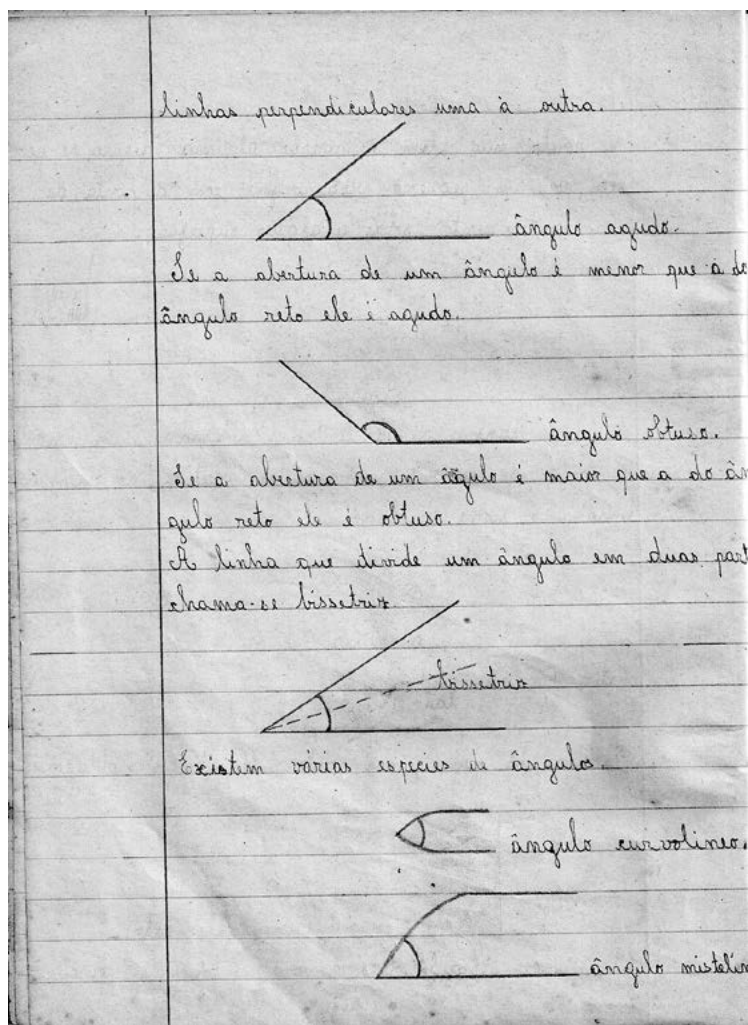 linhas perpendiculares uma à outra.
ângulo agudo.
Se a abertura de um ângulo é menor que a do
ângulo reto ele é agudo.
ângulo obtuso.
Se a abertura de um ângulo é maior que a do ân
gulo reto ele é obtuso.
A linha que divide um ângulo em duas part
chama-se bissetriz
bissetriz
Existem várias especies de ângulos.
ângulo curvolineo.
ângulo mistelin